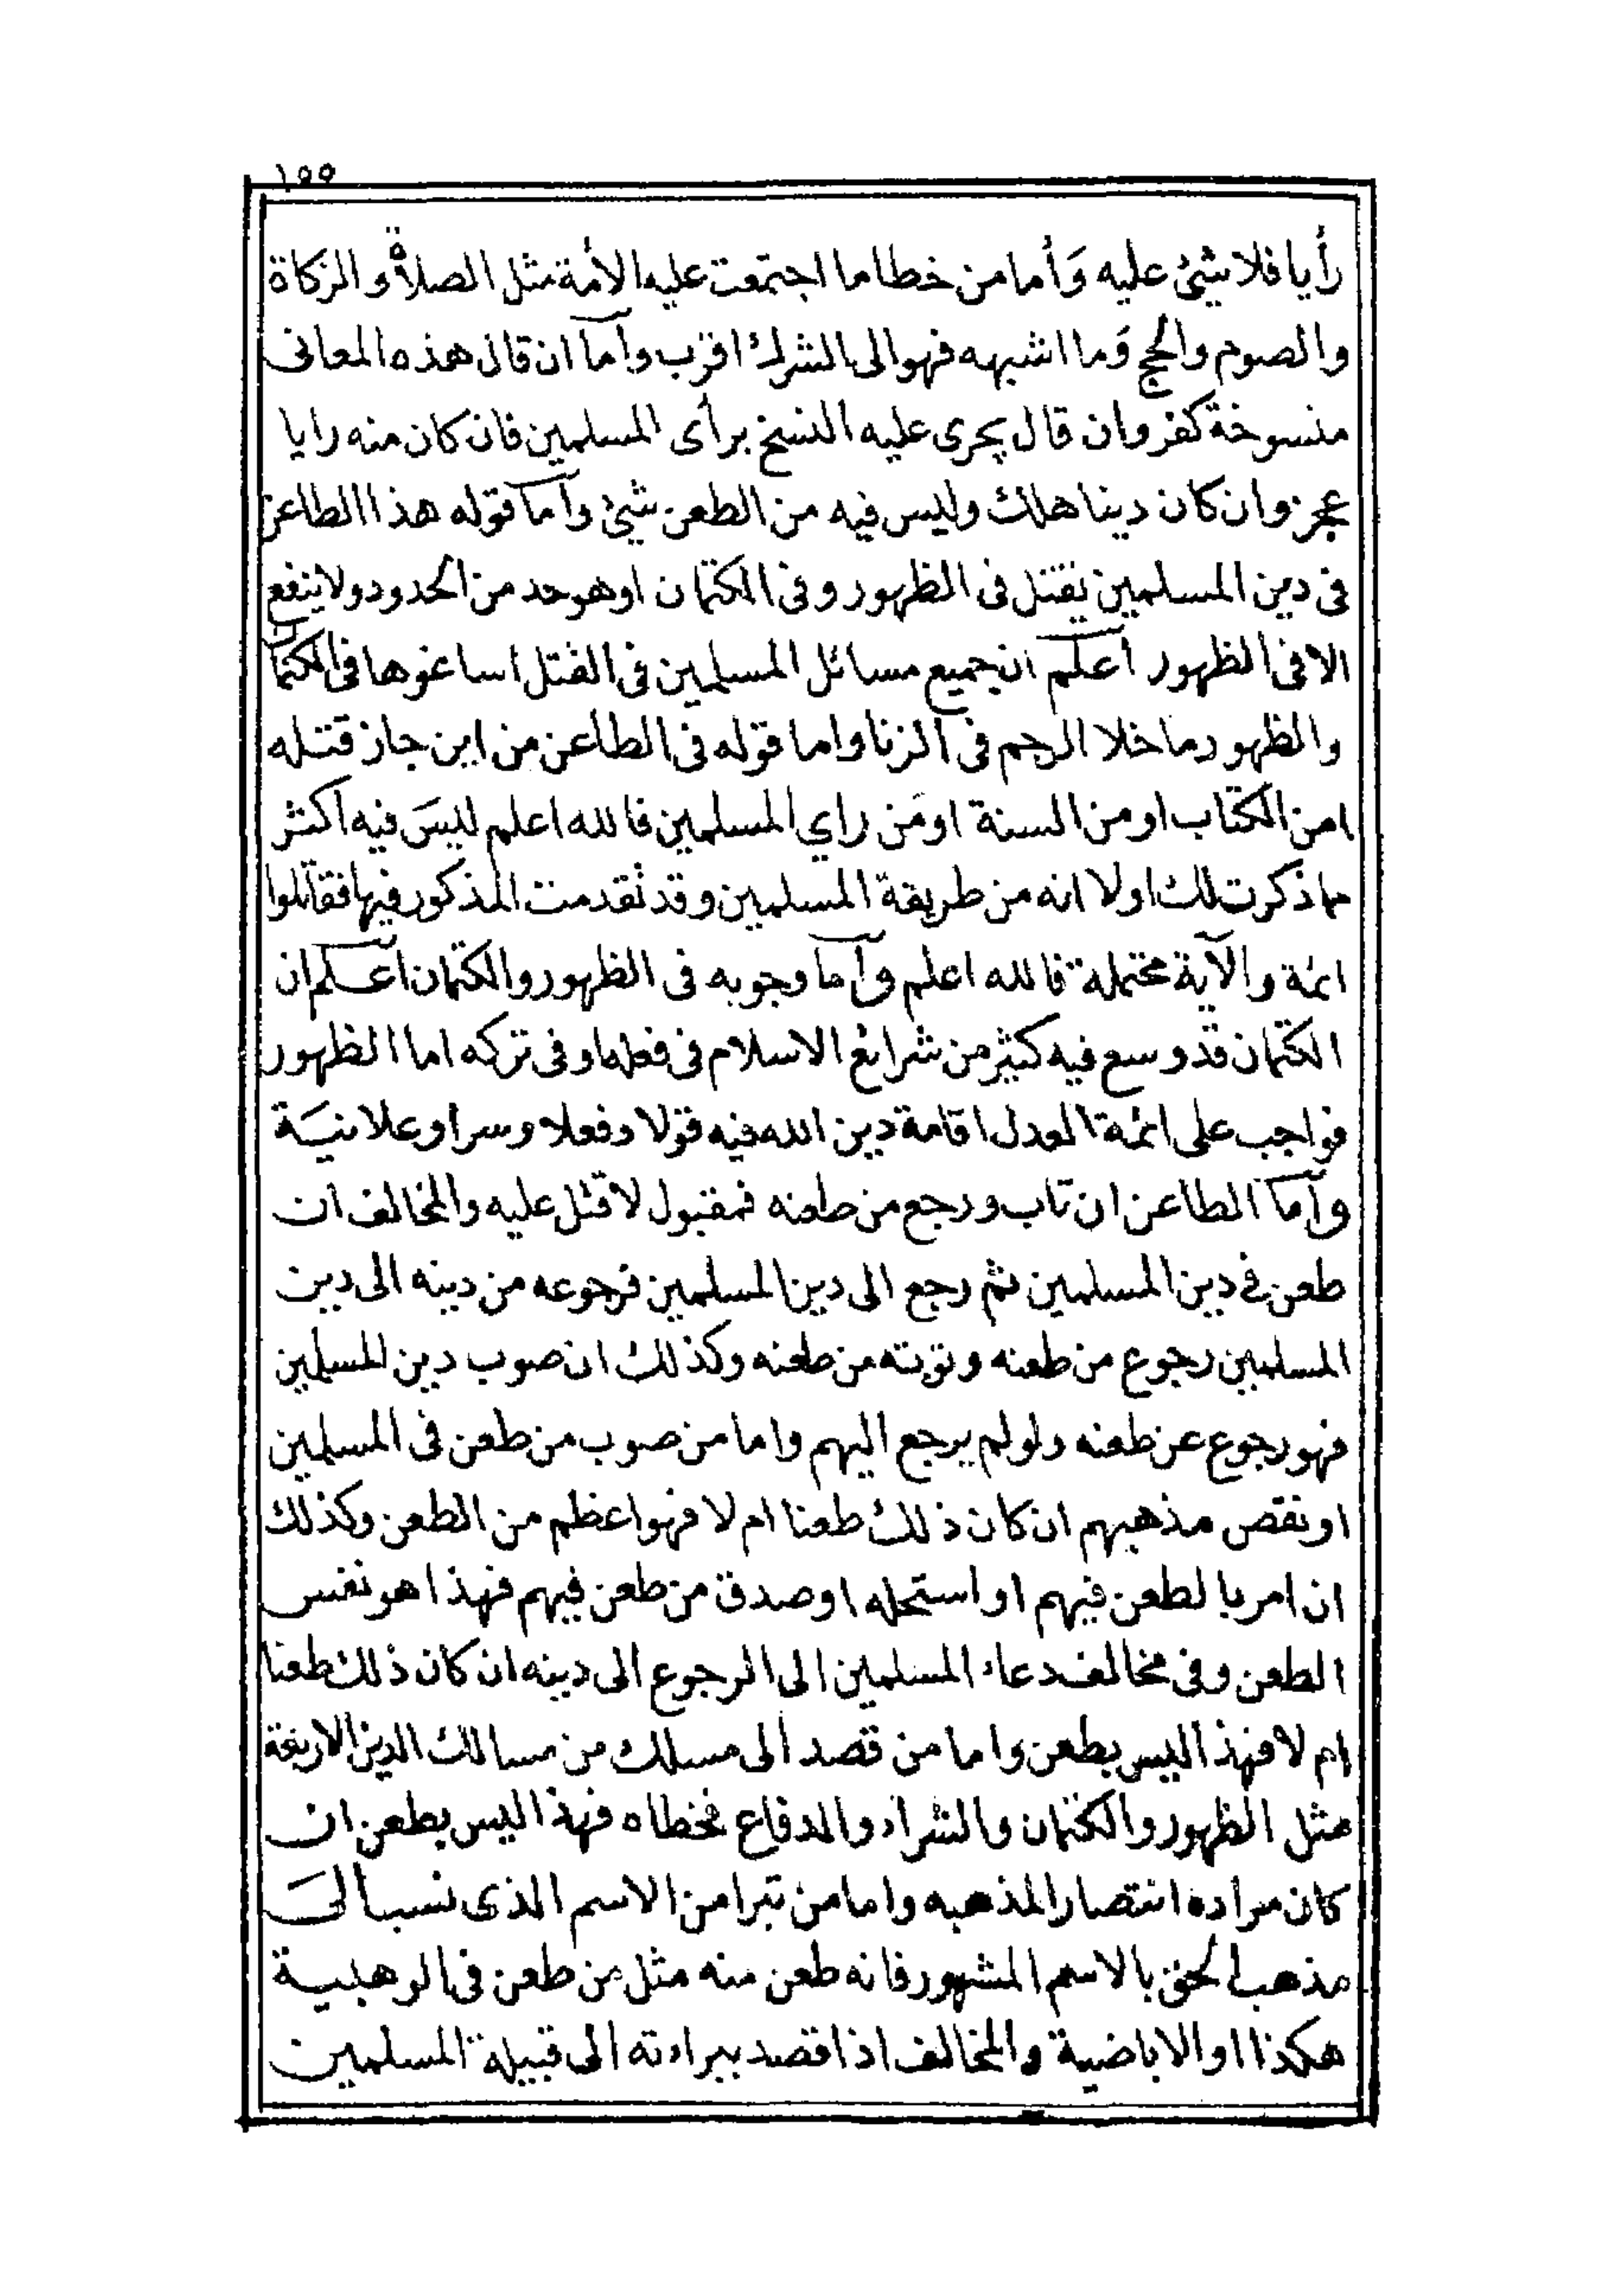 ١٥٥
رأيا فلا شئ عليه وَأما من خطا ما اجتمعت عليه الأمة مثل الصلاة والزكاة
والصوم والحج وَما اشبهه فهو الى الشرك اقرب وأما ان قال هذه المعانى
منسوخة كفر وان قال يجرى عليه النسخ برأى المسلمين فان كان منه رايا
عجز وان كان دينا هلك وليس فيه من الطعن شئ وأما قوله هذا الطاعن
فى دين المسلمين يقتل فى الظهور وفى الكتمان او هو حد من الحدود ولا ينفع
الا فى الظهور أعلم ان جميع مسائل المسلمين فى القتل اساغوها فى الكتمان
والظهور ما خلا الرجم فى الزنا واما قوله فى الطاعن من اين جاز قتله
امن الكتاب او من السنة او مَن راي المسلمين فالله اعلم ليسَ فيه اكثر
مما ذكرت لك اولا انه من طريقة المسلمين وقد تقدمت المذكور فيها فقاتلوا
ائمة والآية محتملة فالله اعلم وأما وجوبه فى الظهور والكتمان أعلم ان
الكتمان قد وسع فيه كثير من شرائع الاسلام فى فعله او فى تركه اما الظهور
فواجب على ائمة العدل اقامة دين الله فيه قولا وفعلا وسرا وعلانيَة
وأما الطاعن ان تاب ورجع من طعنه فمقبول لا قتل عليه والمخالف ان
طعن فى دين المسلمين ثم رجع الى دين المسلمين فرجوعه من دينه الى دين
المسلمين رجوع من طعنه وتوبته من طعنه وكذلك ان صوب دين المسلمين
فهو رجوع عن طعنه ولو لم يرجع اليهم واما من صوب من طعن فى المسلمين
او نقص مذهبهم ان كان ذلك طعنا ام لا فهو اعظم من الطعن وكذلك
ان امر بالطعن فيهم او استحله او صدق من طعن فيهم فهذا هو نفس
الطعن وفى مخالف دعاء المسلمين الى الرجوع الى دينه ان كان ذلك طعنا
ام لا فهذا ليس بطعن واما من قصد الى مسلك من مسالك الدين الاربعة
مثل الظهور والكتمان والشراء والدفاع فخطاه فهذا ليس بطعن ان
كان مراده انتصارا لمذهبه واما من تبرا من الاسم الذى نسب الىَ
مذهب الحق بالاسم المشهور فانه طعن منه مثل من طعن فى الوهبية
هكذا او الاباضية والمخالف اذا قصد ببراءته الى قبيلة المسلمين